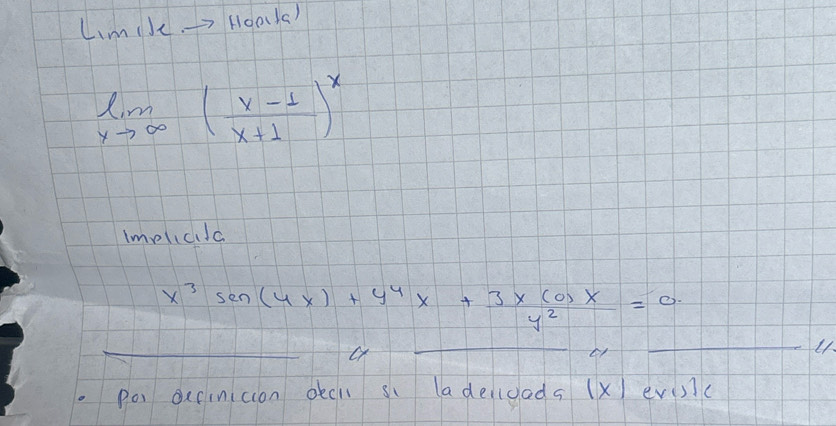 Limite → Hopital
lim x→∞ (x-1/x+1)^x
Implicita
x³ sen(4x) + y⁴x + 3x cos x/y² = 0.
• Por definicion decir si la derivada |x| existe